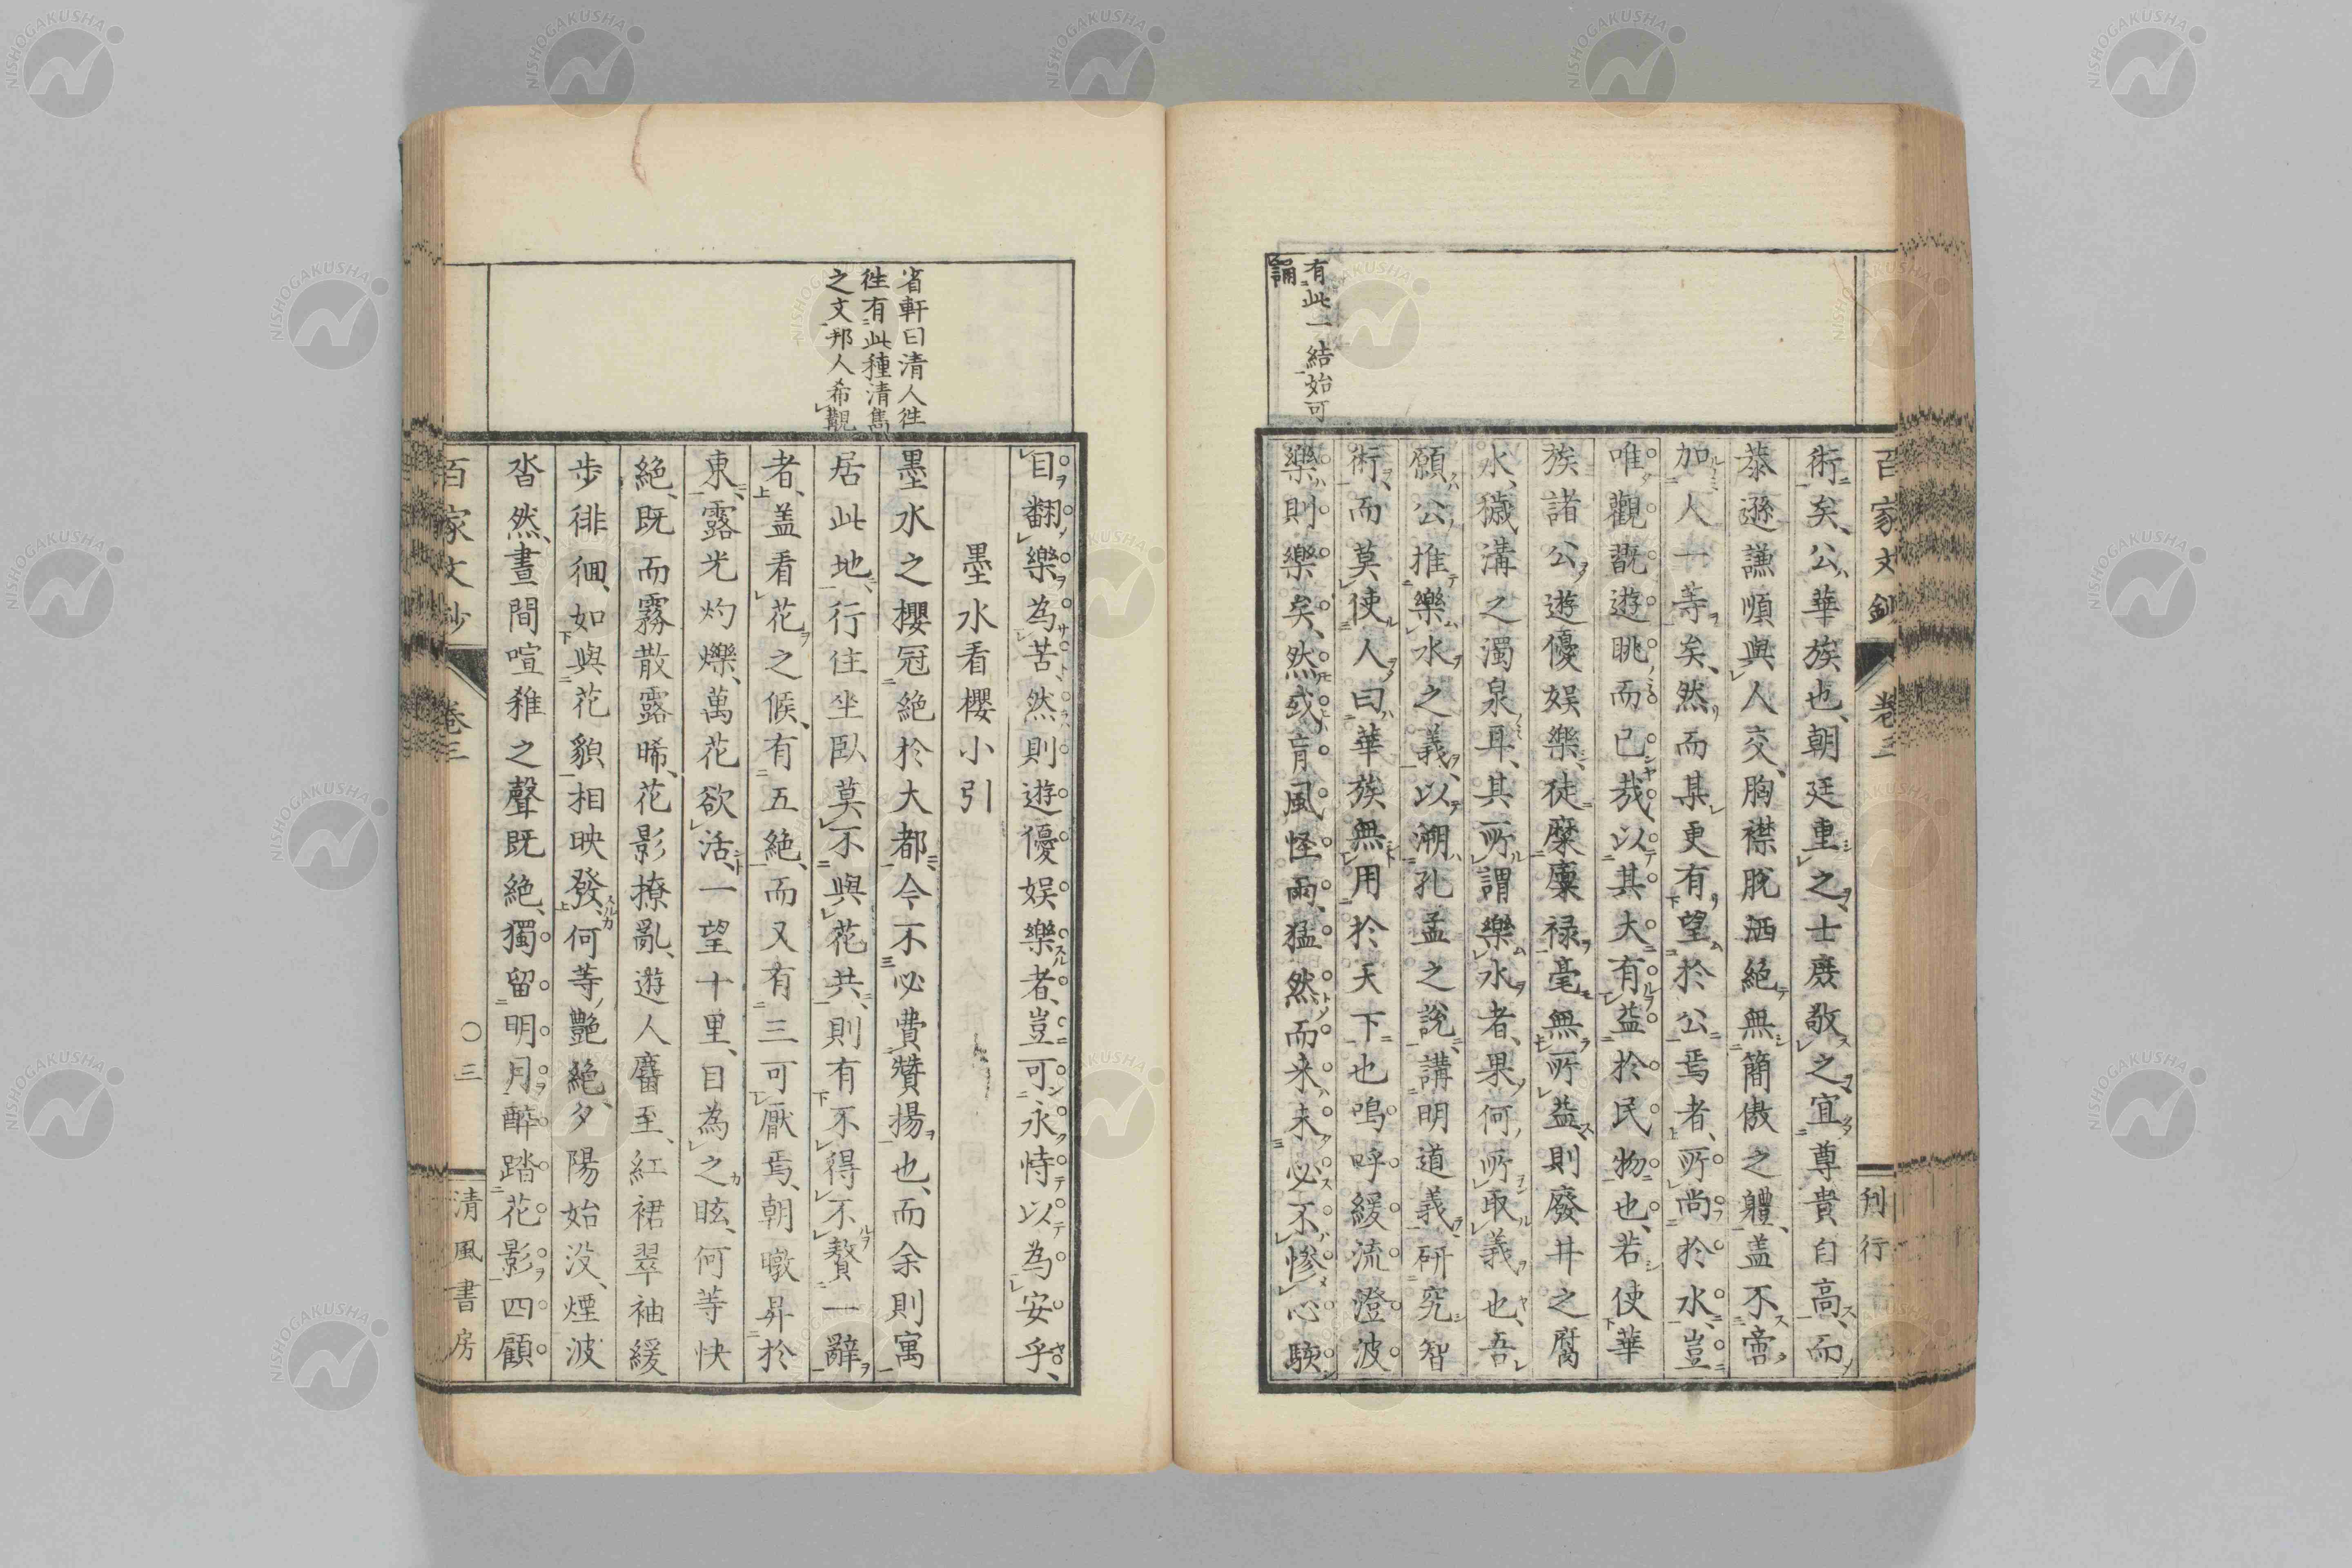 百家文鈔 卷三 刊行
術矣、公華族也、朝廷重之士庶敬之宜尊貴自高、而
恭遜謙順與人交、胸襟脫洒絶無簡傲之軆、盖不啻
加人一等矣、然而某更有望於公焉者、所尚於水、豈
唯觀翫遊眺而已哉、以其大有益於民物也、若使華
族諸公遊優娯樂、徒糜廩禄毫無所益則廢井之腐
水、穢溝之濁泉耳、其所謂樂水者、果何所取義也、吾
願公推樂水之義、以溯孔孟之說、講明道義、研究智
術、而莫使人曰華族無用於天下也嗚呼緩流澄波
樂則樂矣、然或肓風怪雨、猛然而来、未必不惨心駭
有此一結始可
誦
目、翻樂為苦、然則遊優娯樂者、豈可永恃以為安乎、
墨水看櫻小引
墨水之櫻冠絶於大都、今不必費贊揚也、而余則寓
居此地、行住坐臥莫不與花共、則有不得不贅一辭
者、盖看花之候、有五絶、而又有三可厭焉、朝暾昇於
東、露光灼爍、萬花欲活、一望十里、目為之眩、何等快
絶、既而霧散露晞、花影撩亂、遊人麕至、紅裙翠袖緩
步徘徊、如與花貌相映發、何等艷絶、夕陽始没、煙波
沓然、晝間喧雜之聲既絶、獨留明月醉踏花影四顧
省軒曰清人徃
徃有此種清雋
之文邦人希覩
百家文鈔 卷三 〇三 清風書房
NISHOGAKUSHA